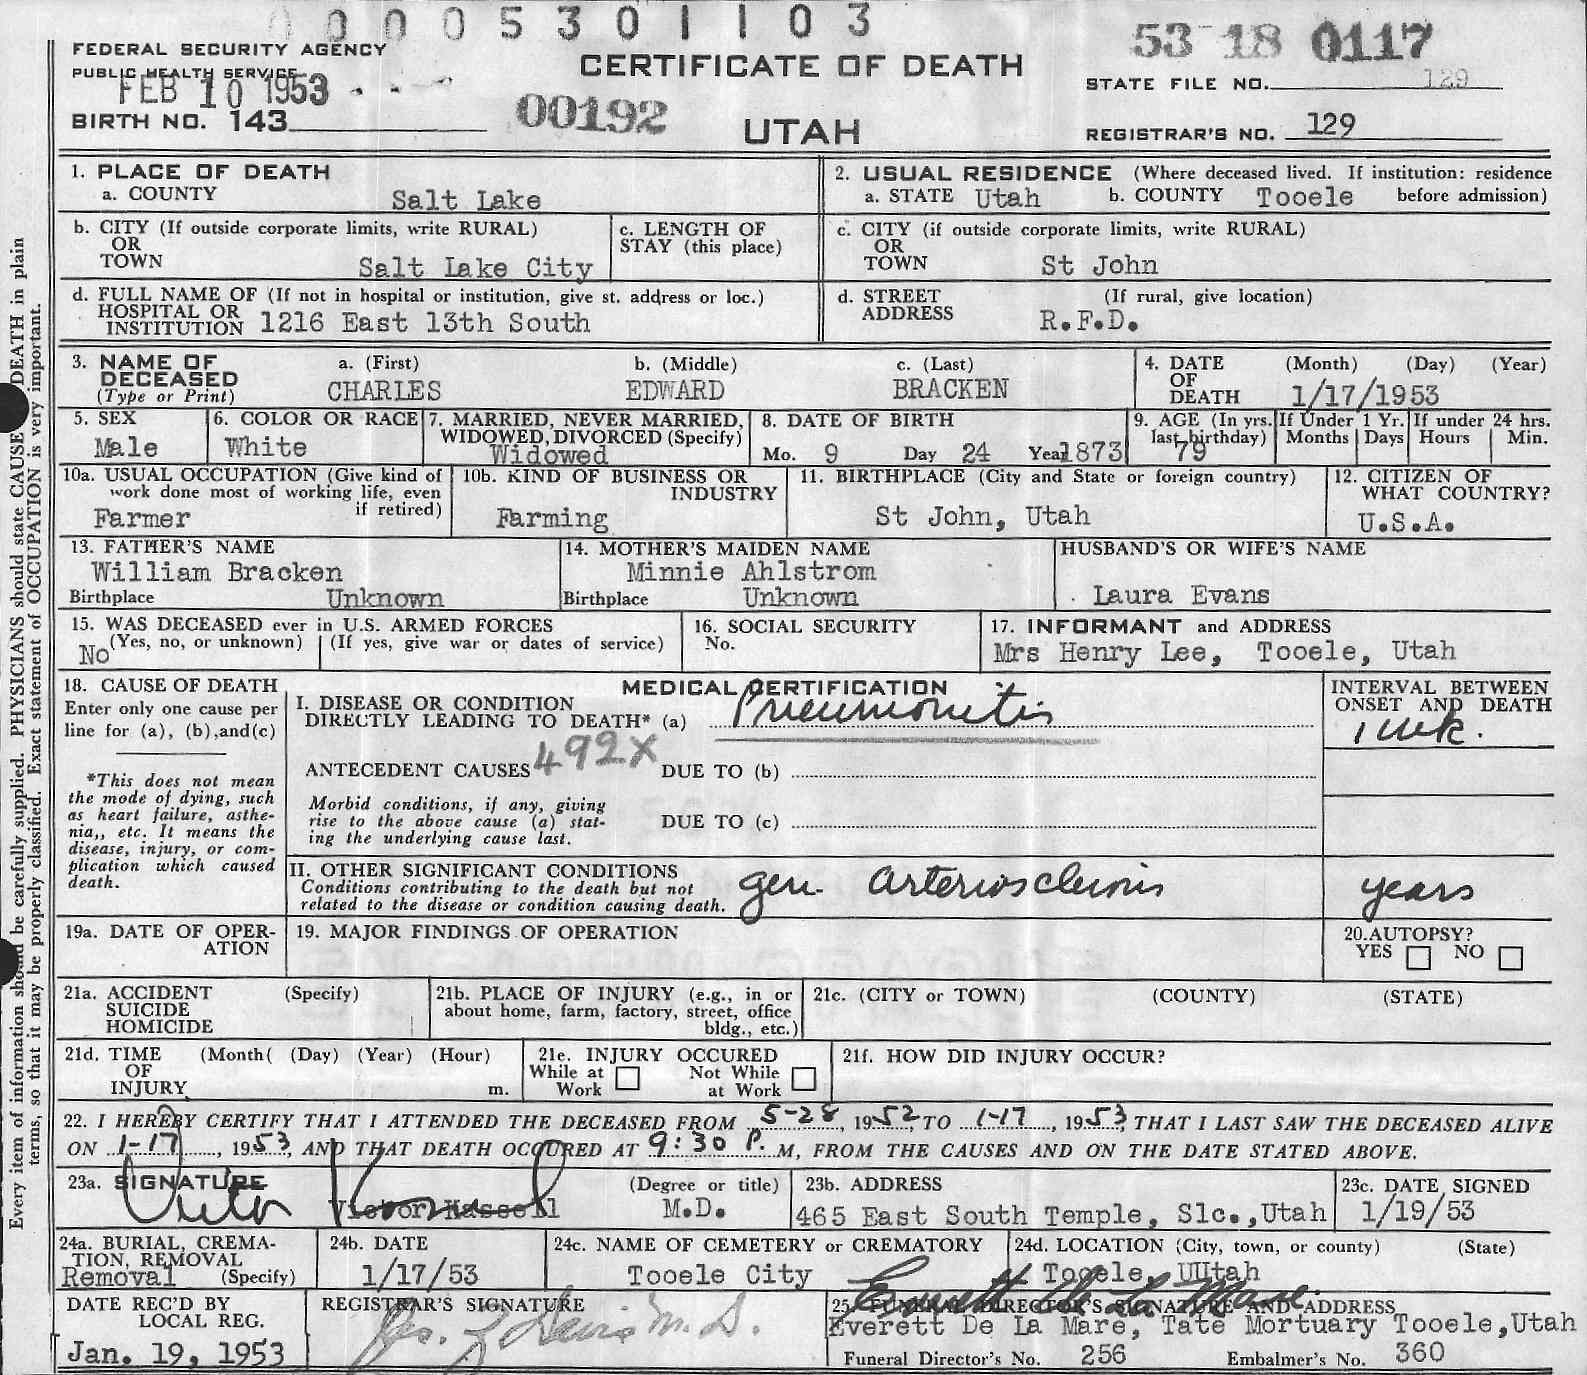 0 0 0 0 5 3 0 1 1 0 3
FEDERAL SECURITY AGENCY
PUBLIC HEALTH SERVICE
FEB 10 1953
BIRTH NO. 143
CERTIFICATE OF DEATH
00192
UTAH
53 18 0117
STATE FILE NO. 129
REGISTRAR'S NO. 129
1. PLACE OF DEATH
a. COUNTY Salt Lake
2. USUAL RESIDENCE (Where deceased lived. If institution: residence before admission)
a. STATE Utah b. COUNTY Tooele
b. CITY (If outside corporate limits, write RURAL)
OR
TOWN Salt Lake City
c. LENGTH OF
STAY (this place)
c. CITY (if outside corporate limits, write RURAL)
OR
TOWN St John
d. FULL NAME OF (If not in hospital or institution, give st. address or loc.)
HOSPITAL OR
INSTITUTION 1216 East 13th South
d. STREET (If rural, give location)
ADDRESS R.F.D.
3. NAME OF DECEASED (Type or Print)
a. (First) b. (Middle) c. (Last)
CHARLES EDWARD BRACKEN
4. DATE OF DEATH (Month) (Day) (Year)
1/17/1953
5. SEX
Male
6. COLOR OR RACE
White
7. MARRIED, NEVER MARRIED,
WIDOWED, DIVORCED (Specify)
Widowed
8. DATE OF BIRTH
Mo. 9 Day 24 Year 1873
9. AGE (In yrs. last birthday)
79
If Under 1 Yr.
Months Days
If under 24 hrs.
Hours Min.
10a. USUAL OCCUPATION (Give kind of
work done most of working life, even
if retired)
Farmer
10b. KIND OF BUSINESS OR
INDUSTRY
Farming
11. BIRTHPLACE (City and State or foreign country)
St John, Utah
12. CITIZEN OF
WHAT COUNTRY?
U.S.A.
13. FATHER'S NAME
William Bracken
Birthplace Unknown
14. MOTHER'S MAIDEN NAME
Minnie Ahlstrom
Birthplace Unknown
HUSBAND'S OR WIFE'S NAME
Laura Evans
15. WAS DECEASED ever in U.S. ARMED FORCES
(Yes, no, or unknown) (If yes, give war or dates of service)
No
16. SOCIAL SECURITY
No.
17. INFORMANT and ADDRESS
Mrs Henry Lee, Tooele, Utah
18. CAUSE OF DEATH
Enter only one cause per
line for (a), (b),and(c)
*This does not mean
the mode of dying, such
as heart failure, asthe-
nia,, etc. It means the
disease, injury, or com-
plication which caused
death.
MEDICAL CERTIFICATION
I. DISEASE OR CONDITION
DIRECTLY LEADING TO DEATH* (a) Pneumonitis
INTERVAL BETWEEN
ONSET AND DEATH
1 wk.
ANTECEDENT CAUSES 492X DUE TO (b)
Morbid conditions, if any, giving
rise to the above cause (a) stat-
ing the underlying cause last.
DUE TO (c)
II. OTHER SIGNIFICANT CONDITIONS
Conditions contributing to the death but not
related to the disease or condition causing death.
gen. arteriosclerosis years
19a. DATE OF OPER-
ATION
19. MAJOR FINDINGS OF OPERATION
20.AUTOPSY?
YES NO
21a. ACCIDENT (Specify)
SUICIDE
HOMICIDE
21b. PLACE OF INJURY (e.g., in or
about home, farm, factory, street, office
bldg., etc.)
21c. (CITY or TOWN) (COUNTY) (STATE)
21d. TIME (Month( (Day) (Year) (Hour)
OF
INJURY m.
21e. INJURY OCCURED
While at Work Not While at Work
21f. HOW DID INJURY OCCUR?
22. I HEREBY CERTIFY THAT I ATTENDED THE DECEASED FROM 5-28, 1952, TO 1-17, 1953, THAT I LAST SAW THE DECEASED ALIVE
ON 1-17, 1953, AND THAT DEATH OCCURED AT 9:30 P. M, FROM THE CAUSES AND ON THE DATE STATED ABOVE.
23a. SIGNATURE (Degree or title)
Victor Kassell M.D.
23b. ADDRESS
465 East South Temple, Slc.,Utah
23c. DATE SIGNED
1/19/53
24a. BURIAL, CREMA-
TION, REMOVAL
Removal (Specify)
24b. DATE
1/17/53
24c. NAME OF CEMETERY or CREMATORY
Tooele City
24d. LOCATION (City, town, or county) (State)
Tooele, UUtah
DATE REC'D BY
LOCAL REG.
Jan. 19, 1953
REGISTRAR'S SIGNATURE
Davis M.D.
Everett De La Mare
25. FUNERAL DIRECTOR'S SIGNATURE AND ADDRESS
Everett De La Mare, Tate Mortuary Tooele,Utah
Funeral Director's No. 256 Embalmer's No. 360
Every item of information should be carefully supplied. PHYSICIANS should state CAUSE OF DEATH in plain
terms, so that it may be properly classified. Exact statement of OCCUPATION is very important.